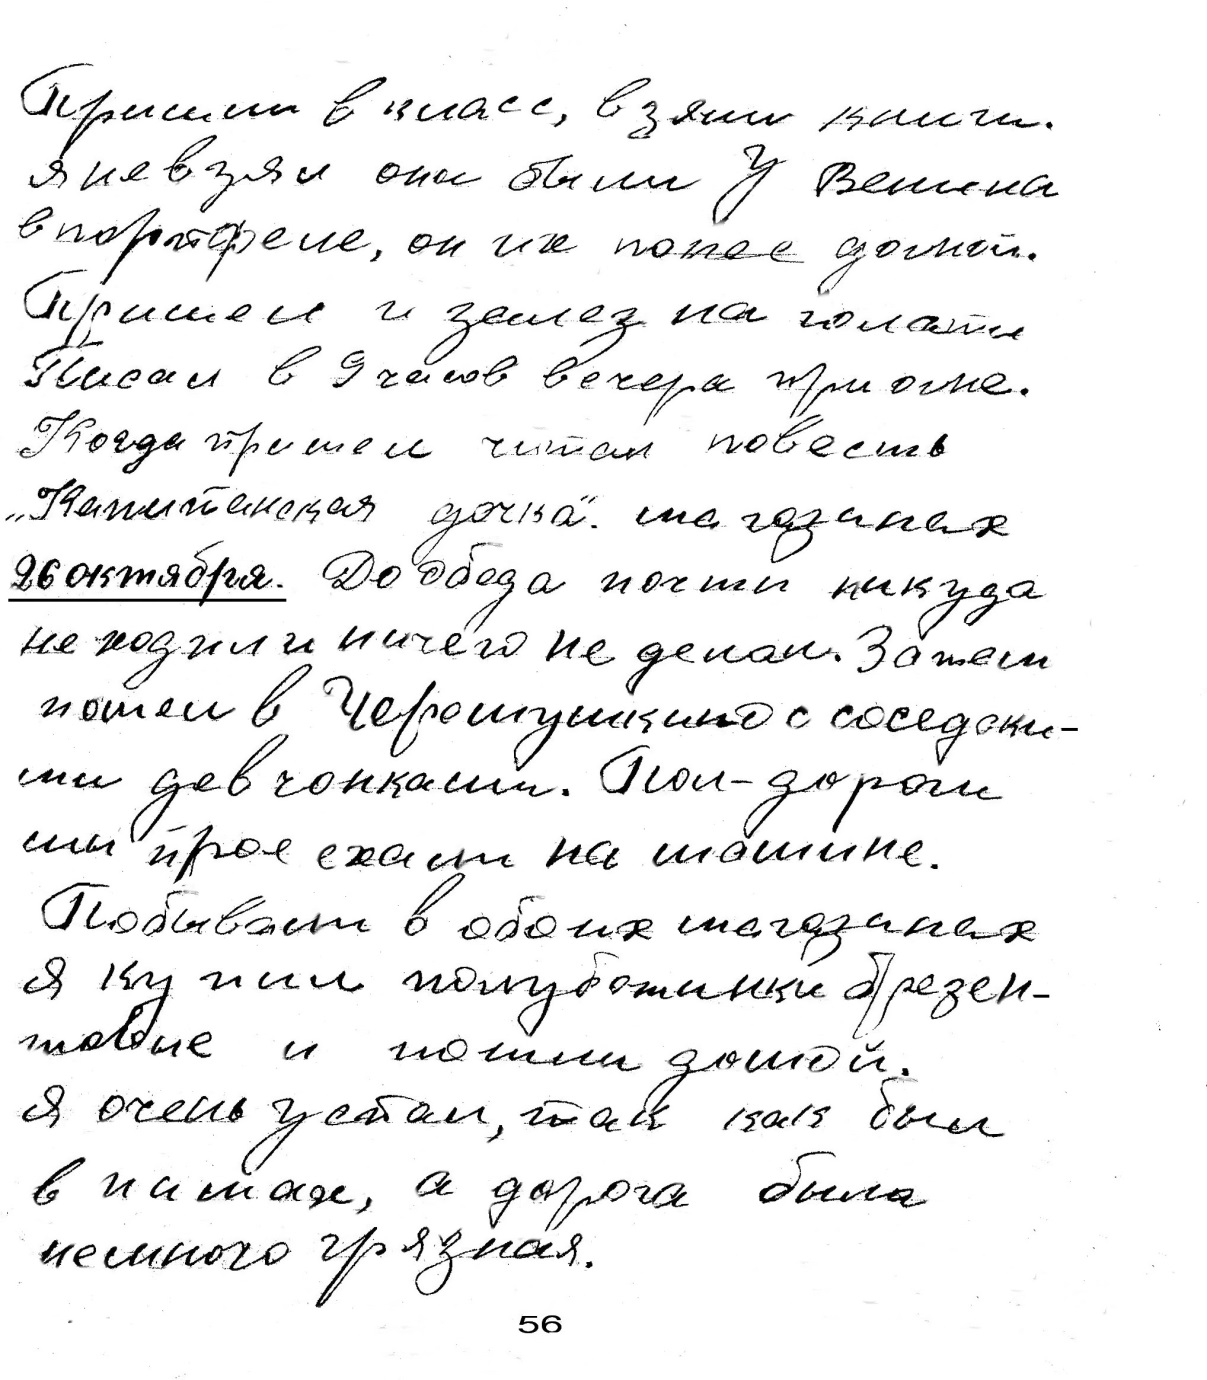 Пришли в класс, взяли книги.
я не взял они были у Венина
в портфеле, он их понес домой.
Пришел и залез на полати
Писал в 9 часов вечера при огне.
Когда пришел читал повесть
„Капитанская дочка". магазинах
26 октября. До обеда почти никуда
не ходил и ничего не делал. Затем
пошел в Черемушкино с соседски-
ми девчонками. Пол-дороги
мы проехали на машине.
Побывали в обоих магазинах
я купил полуботинки брезен-
товые и пошли домой.
я очень устал, так как был
в пимах, а дорога была
немного грязная.
56